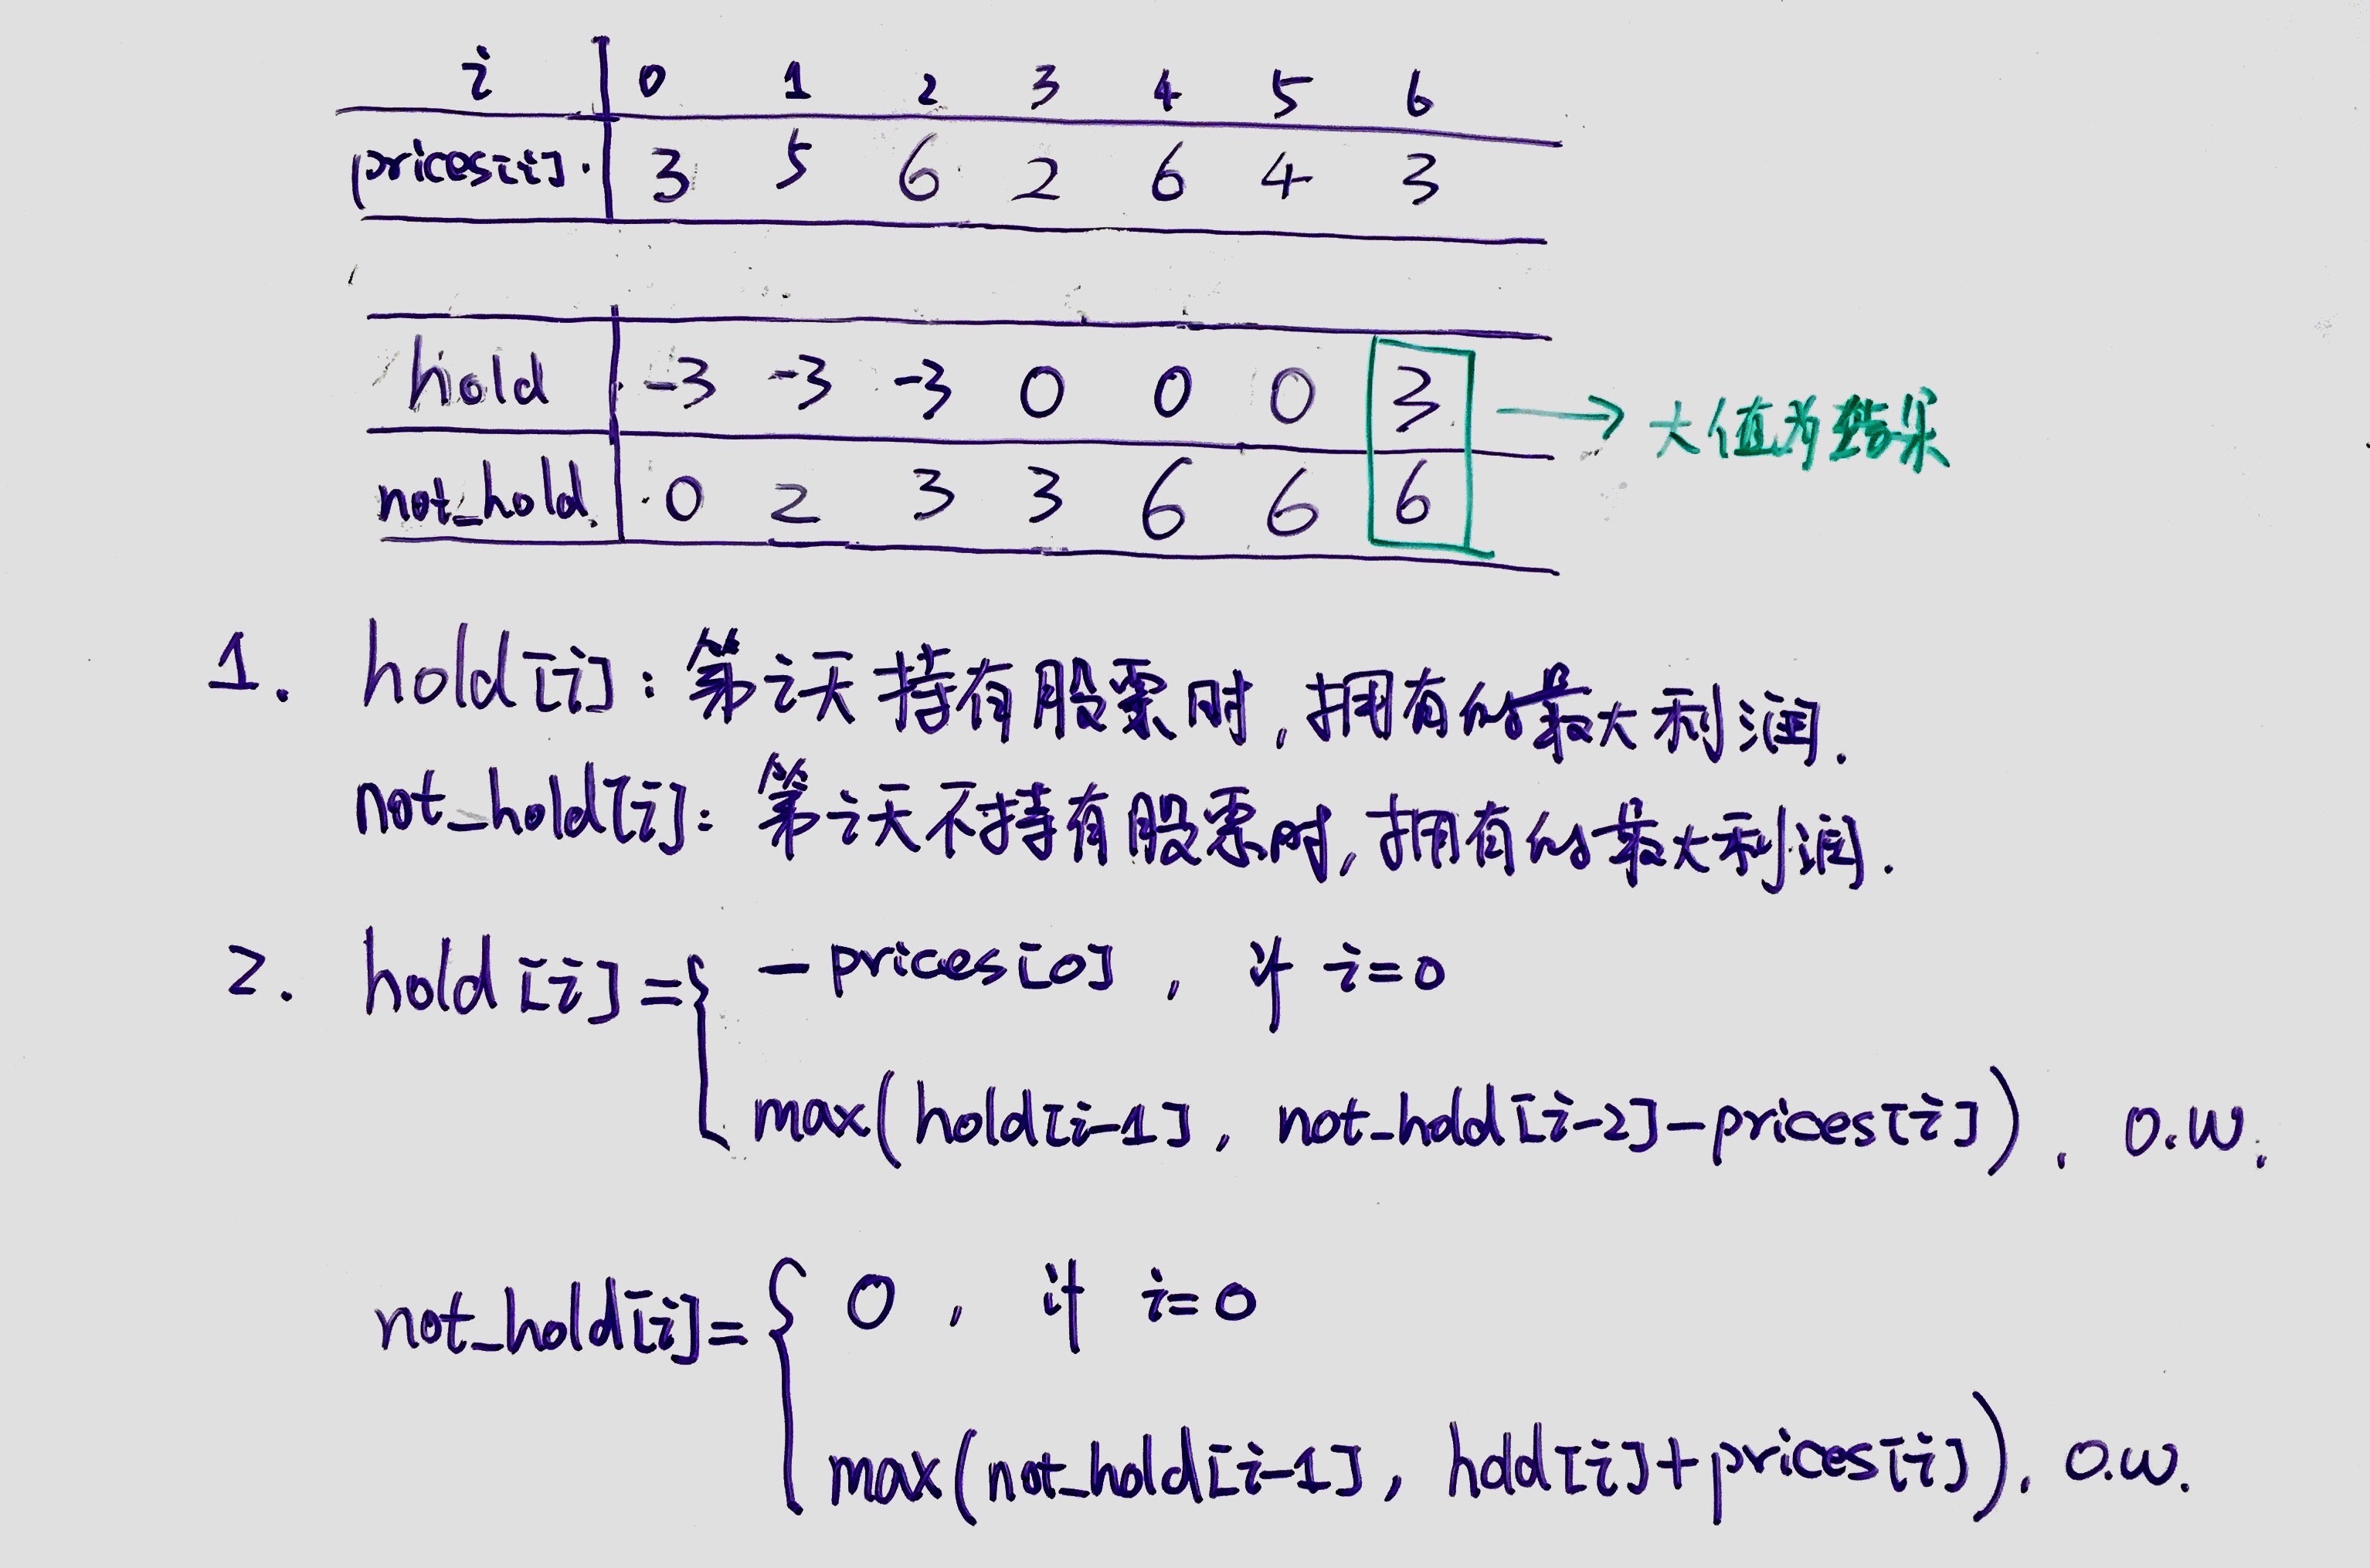 i 0 1 2 3 4 5 6
prices[i] 3 5 6 2 6 4 3
hold -3 -3 -3 0 0 0 3 → 大值为结果
not_hold 0 2 3 3 6 6 6
1. hold[i]: 第i天持有股票时, 拥有的最大利润.
not_hold[i]: 第i天不持有股票时, 拥有的最大利润.
2. hold[i]={ -prices[0], if i=0
max(hold[i-1], not-hold[i-2]-prices[i]), o.w.
not_hold[i]={ 0, if i=0
max(not_hold[i-1], hold[i]+prices[i]), o.w.